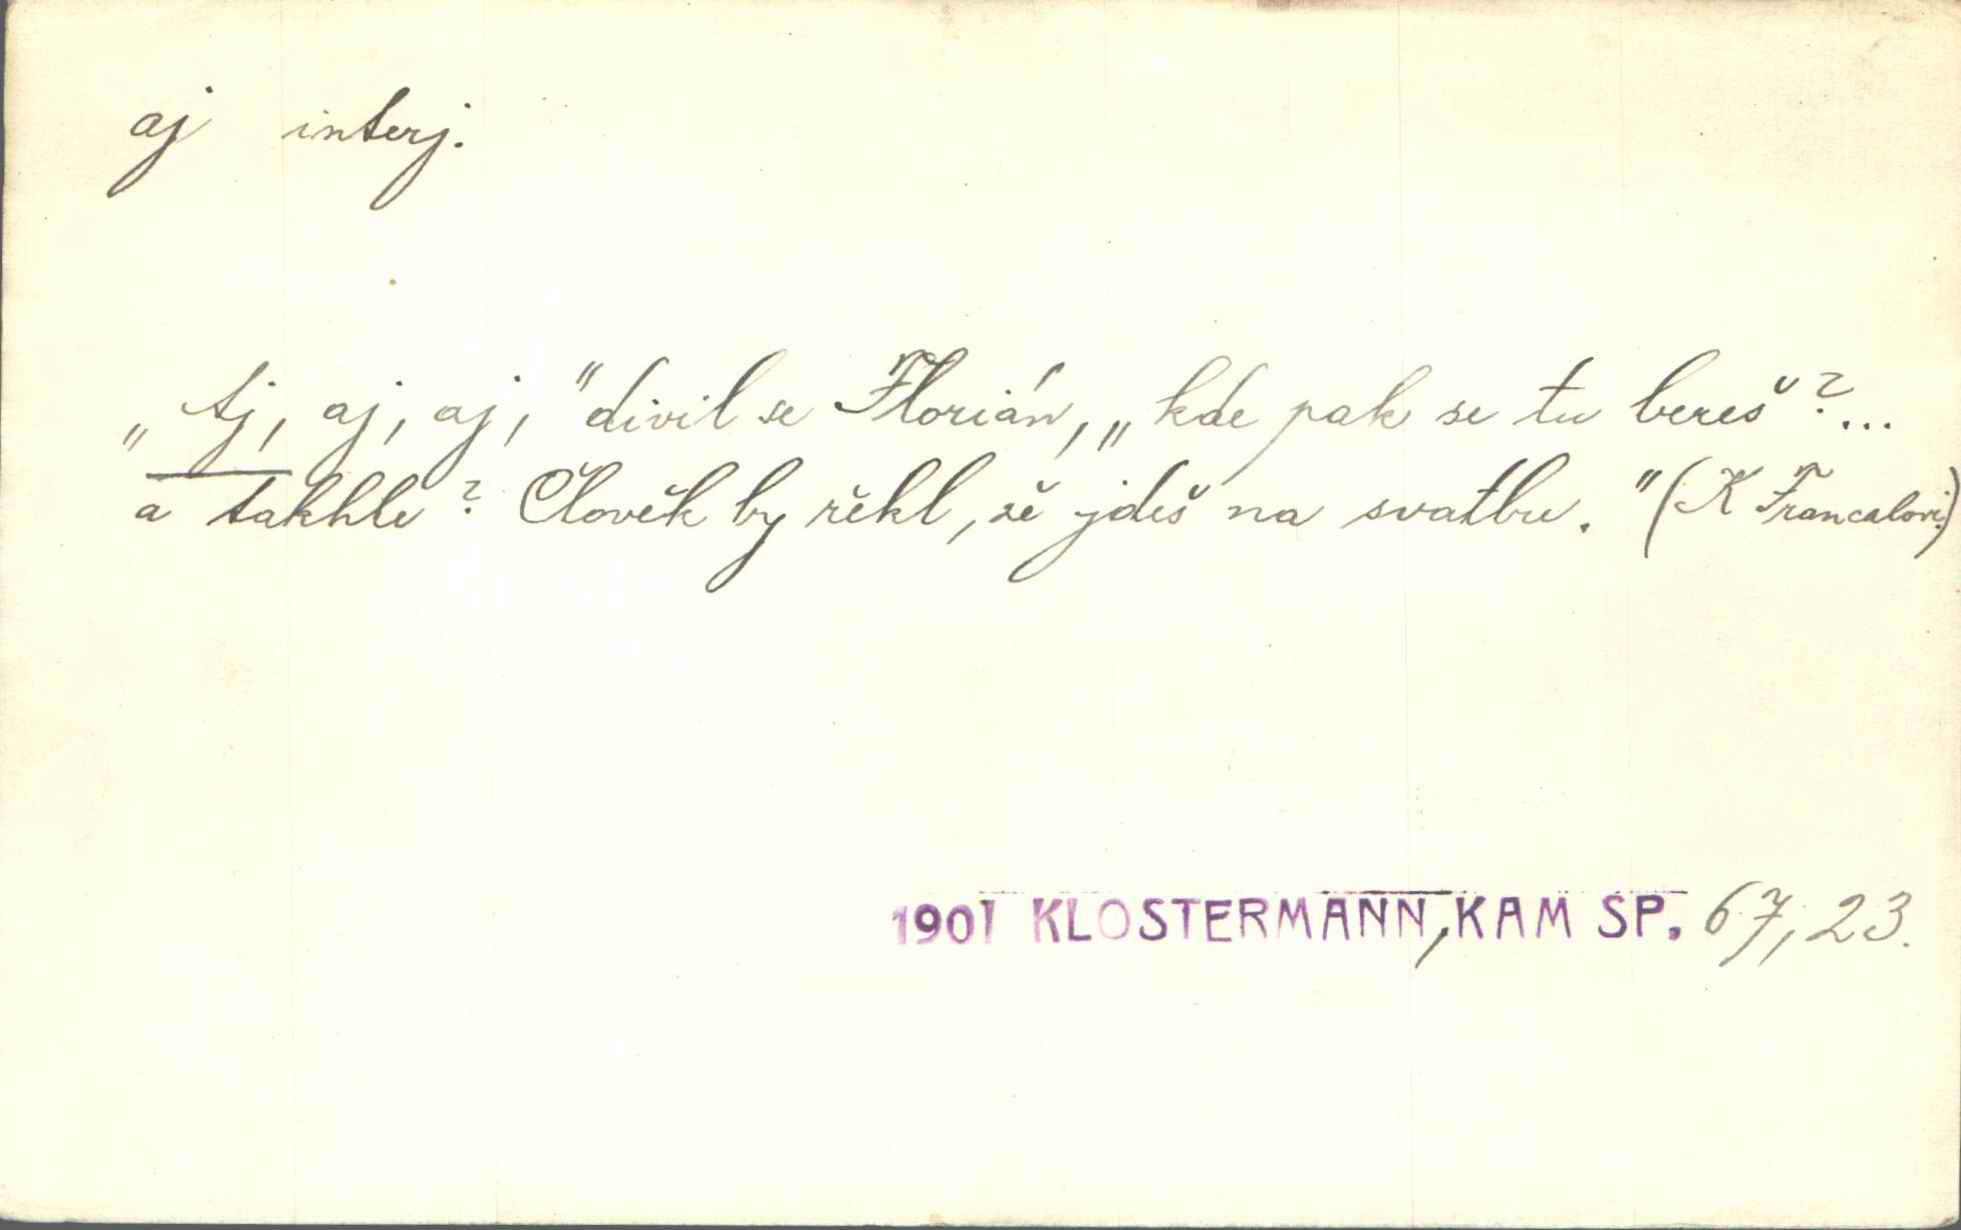 aj interj.
„Aj, aj, aj,“ divil se Florián, „kde pak se tu bereš?...
a takhle? Člověk by řekl, že jdeš na svatbu.“ (K Francalovi.)
1901 KLOSTERMANN, KAM SP. 67, 23.